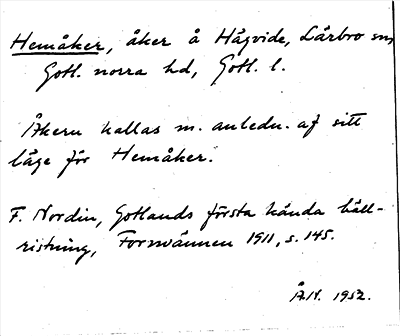 Hemåker, åker å Hägvide, Lärbro sn,
Gotl. norra hd, Gotl. l.
Åkern kallas m. anledn. af sitt
läge för Hemåker.
F. Nordin, Gotlands första kända häll-
ristning, Fornvännen 1911, s. 145.
Å.H. 1952.